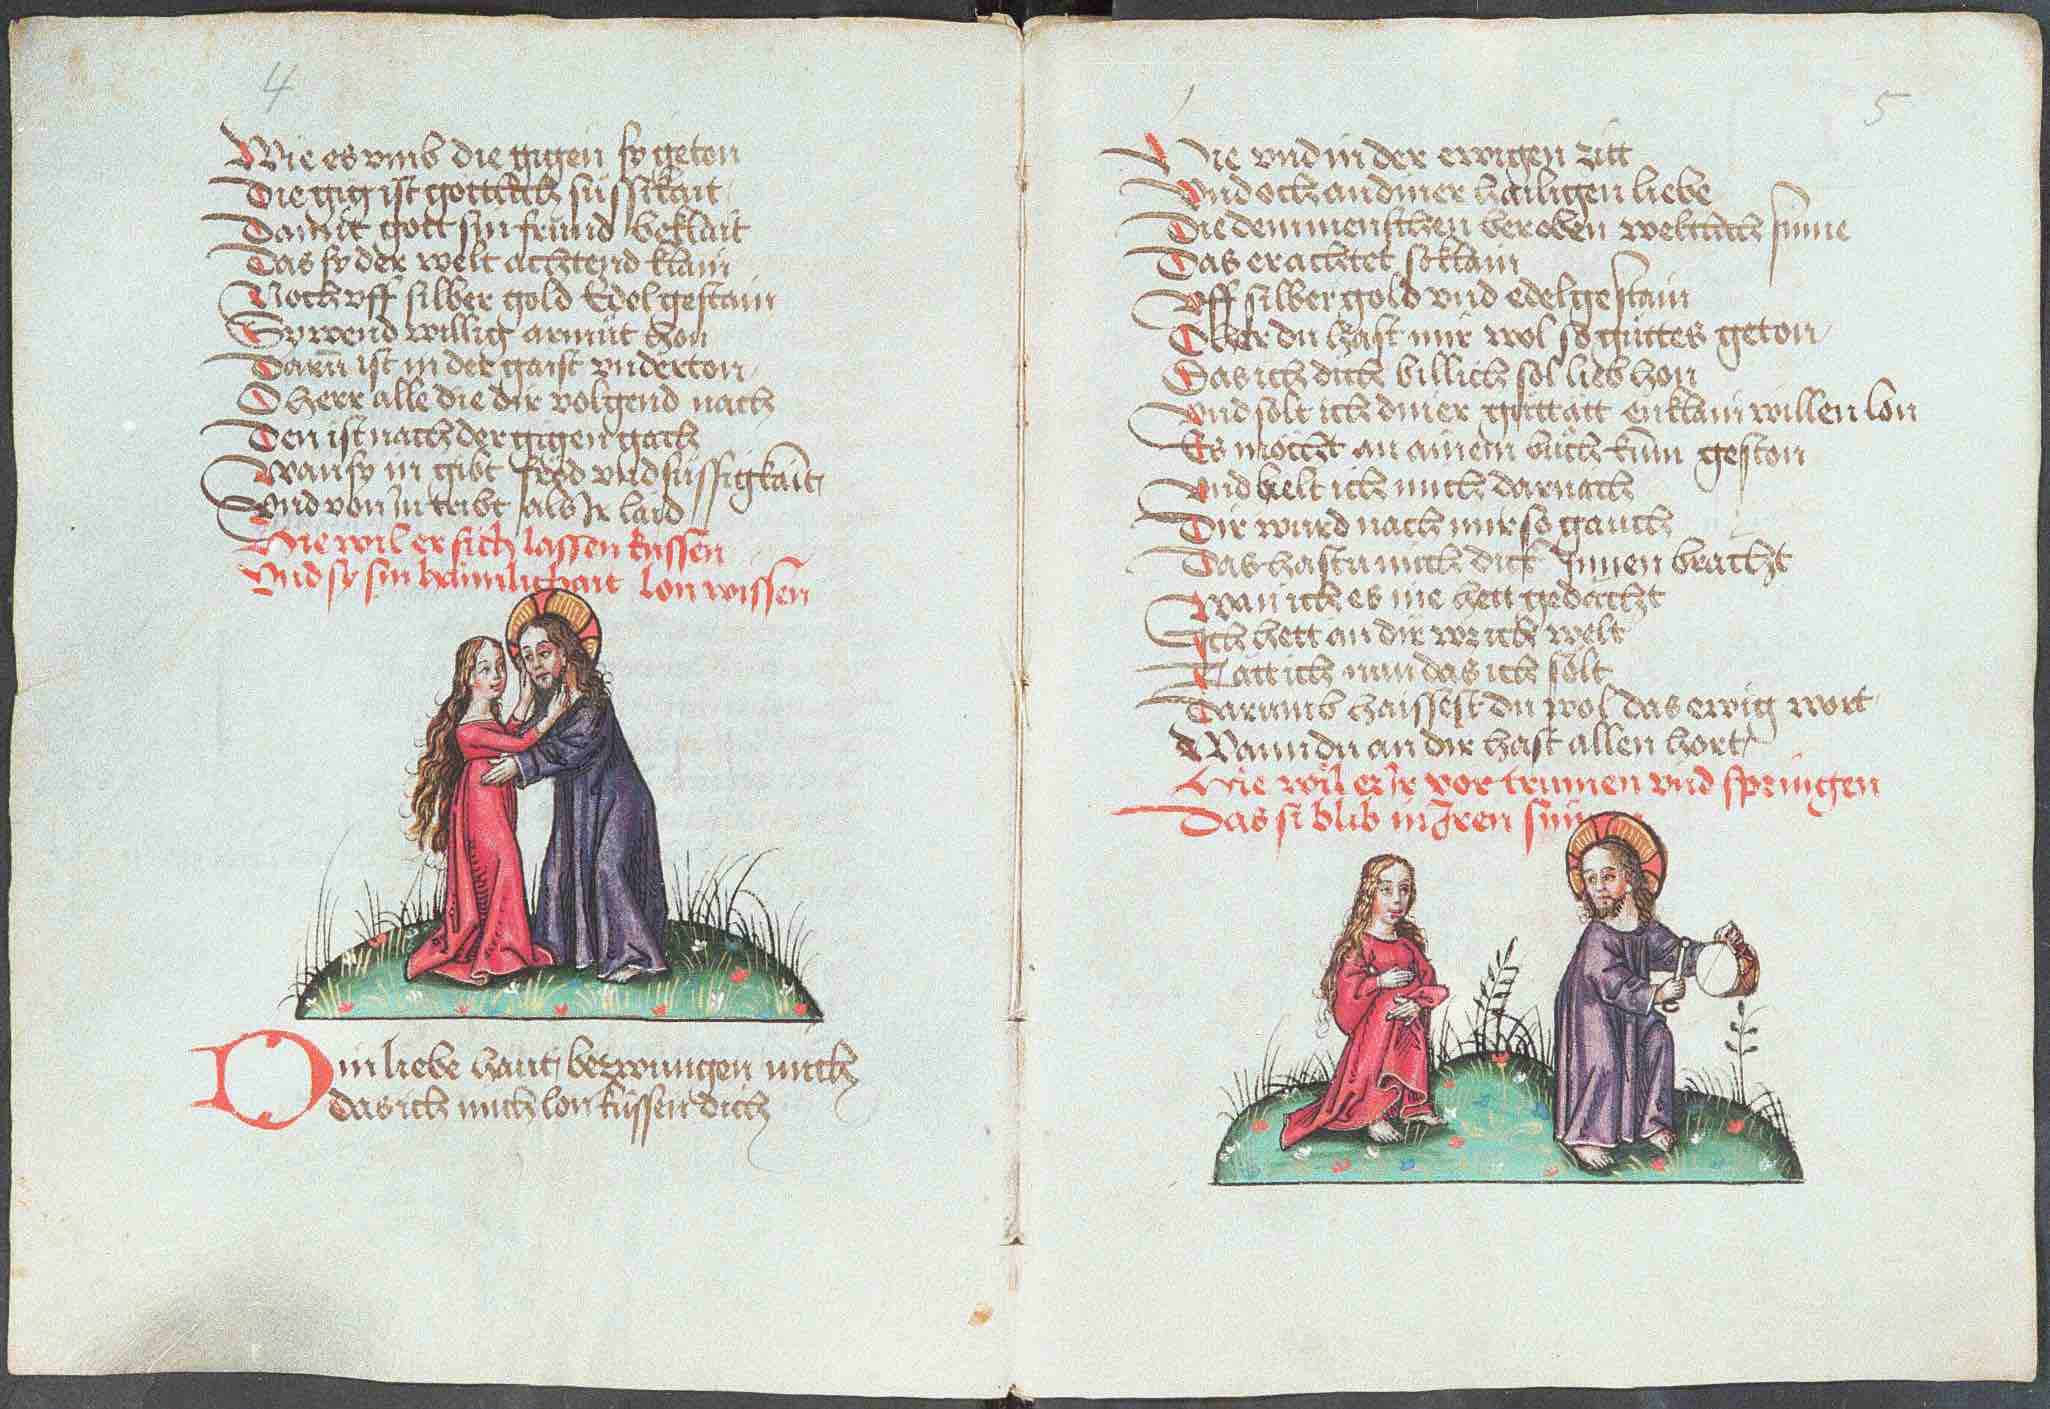 4
Wie es vmb die gigen sy geton
Die gig ist göttlich süssikait
Damit gott sin fründ beklait
Das sy der welt achtend klain
Noch vff silber gold Edelgestain
Sy wend willig armüt hon
Darin ist in der gaist vnderton
O herr alle die dir volgend nach
Den ist nach der gigen gach
Wan sy in gibt fröd vnd süssigkait
Vnd von In tribt als Ir laid
Hie wil er sich lassen küssen
Vnd sy sin haimlichait lon wissen
Din liebe haut bezwungen mich
das ich mich lon küssen dich
5
Hie vnd in der ewigen zitt
Vnd och an diner hailigen liebe
Die dem menschen beroben weltlich sinne
Das er achtet so klain
Vff silber gold vnd edelgestain
O herr du hast mir wol so güttes geton
Das ich dich billich sol lieb hon
Vnd solt ich diner güttätt enklain willen lon
Es möcht an ainem büch kum geston
Vnd hielt ich mich darnach
Dir wurd nach mir so gauch
Das hastu mich dick Innen bracht
Wan ich es nie hett gedächt
Ich hett an dir welt
Tätt ich nun das ich sölt
Darumb haissest du wol das ewig wort
Wann du an dir hast allen hort
Hie wil er Ir vor trumen vnd springen
Das si blib in Iren